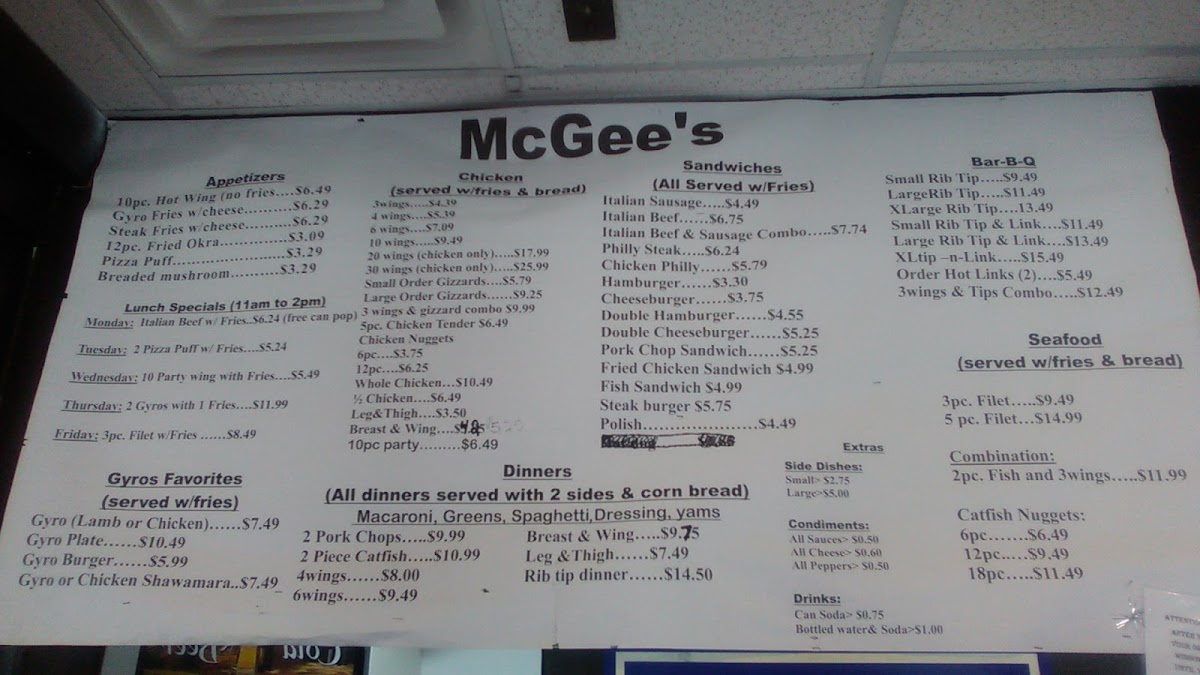 McGee's
Appetizers
10pc. Hot Wing (no fries....$6.49
Gyro Fries w/cheese..........$6.29
Steak Fries w/cheese.........$6.29
12pc. Fried Okra..............$3.09
Pizza Puff.......................$3.29
Breaded mushroom..........$3.29
Lunch Specials (11am to 2pm)
Monday: Italian Beef w/ Fries..$6.24 (free can pop)
Tuesday: 2 Pizza Puff w/ Fries....$5.24
Wednesday: 10 Party wing with Fries....$5.49
Thursday: 2 Gyros with 1 Fries....$11.99
Friday: 3pc. Filet w/Fries ......$8.49
Gyros Favorites
(served w/fries)
Gyro (Lamb or Chicken)......$7.49
Gyro Plate......$10.49
Gyro Burger......$5.99
Gyro or Chicken Shawamara..$7.49
Chicken
(served w/fries & bread)
3wings.....$4.39
4 wings....$5.39
6 wings....$7.09
10 wings....$9.49
20 wings (chicken only).....$17.99
30 wings (chicken only)....$25.99
Small Order Gizzards....$5.79
Large Order Gizzards......$9.25
3 wings & gizzard combo $9.99
5pc. Chicken Tender $6.49
Chicken Nuggets
6pc....$3.75
12pc....$6.25
Whole Chicken...$10.49
½ Chicken....$6.49
Leg&Thigh....$3.50
Breast & Wing....
10pc party.........$6.49
Sandwiches
(All Served w/Fries)
Italian Sausage.....$4.49
Italian Beef......$6.75
Italian Beef & Sausage Combo.....$7.74
Philly Steak.....$6.24
Chicken Philly......$5.79
Hamburger......$3.30
Cheeseburger......$3.75
Double Hamburger......$4.55
Double Cheeseburger......$5.25
Pork Chop Sandwich......$5.25
Fried Chicken Sandwich $4.99
Fish Sandwich $4.99
Steak burger $5.75
Polish.....................$4.49
Dinners
(All dinners served with 2 sides & corn bread)
Macaroni, Greens, Spaghetti,Dressing, yams
2 Pork Chops.....$9.99
2 Piece Catfish.....$10.99
4wings......$8.00
6wings......$9.49
Breast & Wing.....$9.75
Leg &Thigh......$7.49
Rib tip dinner......$14.50
Extras
Side Dishes:
Small> $2.75
Large>$5.00
Condiments:
All Sauces> $0.50
All Cheese> $0.60
All Peppers> $0.50
Drinks:
Can Soda> $0.75
Bottled water& Soda>$1.00
Bar-B-Q
Small Rib Tip.....$9.49
LargeRib Tip.....$11.49
XLarge Rib Tip....13.49
Small Rib Tip & Link....$11.49
Large Rib Tip & Link....$13.49
XLtip –n-Link.....$15.49
Order Hot Links (2)....$5.49
3wings & Tips Combo.....$12.49
Seafood
(served w/fries & bread)
3pc. Filet.....$9.49
5 pc. Filet...$14.99
Combination:
2pc. Fish and 3wings.....$11.99
Catfish Nuggets:
6pc......$6.49
12pc....$9.49
18pc.....$11.49
Beer
Cola